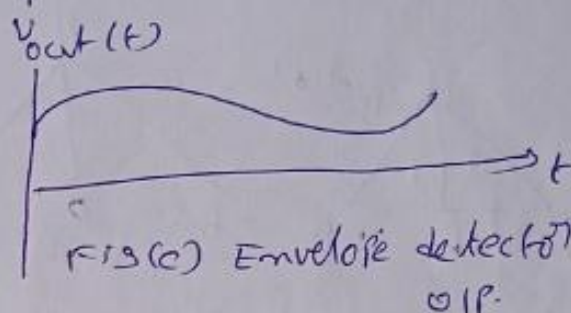 Vout(t)
t
Fig(c) Envelope detector
O/P.